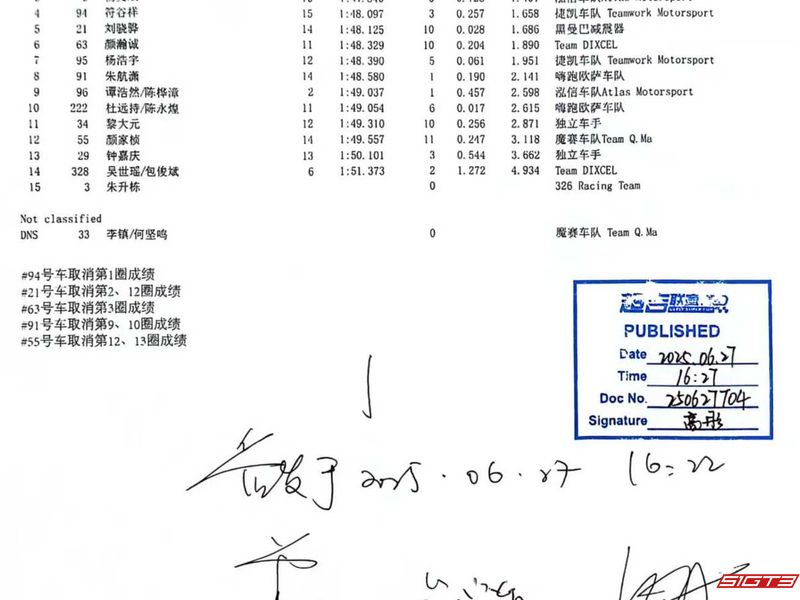 4 94 符谷祥 15 1:48.097 3 0.257 1.658 捷凯车队 Teamwork Motorsport
5 21 刘骁骅 14 1:48.125 10 0.028 1.686 黑曼巴减震器
6 63 颜瀚诚 11 1:48.329 10 0.204 1.890 Team DIXCEL
7 95 杨浩宇 12 1:48.390 5 0.061 1.951 捷凯车队 Teamwork Motorsport
8 91 朱航潇 14 1:48.580 1 0.190 2.141 嗨跑欧萨车队
9 96 谭浩然/陈桦漳 2 1:49.037 1 0.457 2.598 泓信车队Atlas Motorsport
10 222 杜远持/陈永煌 11 1:49.054 6 0.017 2.615 嗨跑欧萨车队
11 34 黎大元 12 1:49.310 10 0.256 2.871 独立车手
12 55 颜家桢 14 1:49.557 11 0.247 3.118 魔赛车队Team Q.Ma
13 29 钟嘉庆 13 1:50.101 3 0.544 3.662 独立车手
14 328 吴世瑶/包俊斌 6 1:51.373 2 1.272 4.934 Team DIXCEL
15 3 朱升栋 0 326 Racing Team
Not classified
DNS 33 李镇/何坚鸣 0 魔赛车队 Team Q.Ma
#94号车取消第1圈成绩
#21号车取消第2、12圈成绩
#63号车取消第3圈成绩
#91号车取消第9、10圈成绩
#55号车取消第12、13圈成绩
PUBLISHED
Date 2025.06.27
Time 16:27
Doc No. 250627704
Signature 高彤
发于 2025.06.27 16:22
51GT3